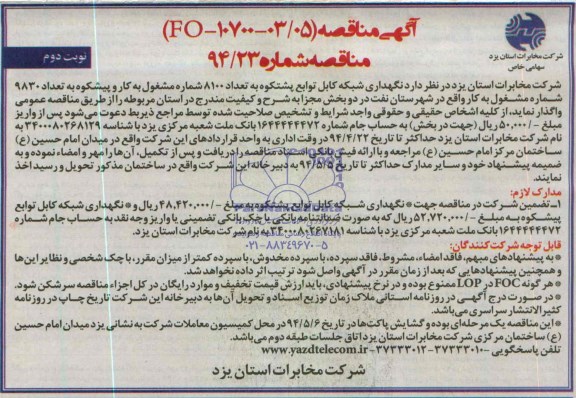 آگهی مناقصه (FO-۱۰۷۰۰-۰۳/۰۵)
مناقصه شماره ۹۴/۲۳
شرکت مخابرات استان یزد
سهامی خاص
نوبت دوم
شرکت مخابرات استان یزد در نظر دارد نگهداری شبکه کابل توابع پشتکوه به تعداد ۸۱۰۰ شماره مشغول به کار و پیشکوه به تعداد ۹۸۳۰
شماره مشغول به کار واقع در شهرستان تفت در دو بخش مجزا به شرح و کیفیت مندرج در اسناد مربوطه را از طریق مناقصه عمومی
واگذار نماید. از کلیه اشخاص حقیقی و حقوقی واجد شرایط و تشخیص صلاحیت شده توسط مراجع ذیربط دعوت می‌شود پس از واریز
مبلغ ۵۰,۰۰۰/- ریال (جهت هر بخش) به حساب جام شماره ۱۶۴۴۴۴۴۴۷۲ بانک ملت شعبه مرکزی یزد با شناسه ۳۴۰۰۰۸۰۲۶۸۱۲۹ به
نام شرکت مخابرات استان یزد حداکثر تا تاریخ ۹۴/۴/۲۲ در وقت اداری به واحد قراردادهای این شرکت واقع در میدان امام حسین (ع)
ساختمان مرکز امام حسین (ع) مراجعه و با ارائه فیش بانکی اسناد مناقصه را دریافت و پس از تکمیل، آن‌ها را مهر و امضاء نموده و به
ضمیمه پیشنهاد خود و سایر مدارک حداکثر تا تاریخ ۹۴/۵/۵ به دبیرخانه این شرکت واقع در ساختمان مذکور تحویل و رسید اخذ
نمایند.
مدارک لازم:
۱- تضمین شرکت در مناقصه جهت * نگهداری شبکه کابل توابع پشتکوه به مبلغ -/۴۸,۴۲۰,۰۰۰ ریال و * نگهداری شبکه کابل توابع
پیشکوه به مبلغ -/۵۲,۷۲۰,۰۰۰ ریال که به صورت ضمانتنامه بانکی یا چک بانکی تضمینی یا واریز وجه نقد به حساب جام شماره
۱۶۴۴۴۴۴۴۷۲ بانک ملت شعبه مرکزی یزد با شناسه ۳۴۰۰۰۸۰۲۶۷۱۸۱ به نام شرکت مخابرات استان یزد.
۰۲۱-۸۸۳۴۹۶۷۰-۵
قابل توجه شرکت کنندگان:
* به پیشنهادهای مبهم، فاقد امضاء، مشروط، فاقد سپرده، با سپرده مخدوش، با سپرده کمتر از میزان مقرر، با چک شخصی و نظایر این‌ها
و همچنین پیشنهادهایی که بعد از زمان مقرر در آگهی واصل شود ترتیب اثر داده نخواهد شد.
* هر گونه FOC در LOP ممنوع بوده و در نرخ پیشنهادی، باید ارزش قیمت تخفیف و موارد رایگان در کل اجزاء مناقصه سرشکن شود.
* در صورت درج آگهی در روزنامه استانی ملاک زمان توزیع اسناد و تحویل آن‌ها به دبیرخانه این شرکت تاریخ چاپ در روزنامه
کثیر الانتشار سراسری می‌باشد.
* این مناقصه یک مرحله‌ای بوده و گشایش پاکت‌ها در تاریخ ۹۴/۵/۶ در محل کمیسیون معاملات شرکت به نشانی یزد میدان امام حسین
(ع) ساختمان مرکزی شرکت مخابرات استان یزد اتاق جلسات طبقه دوم می‌باشد.
تلفن پاسخگویی -۳۷۳۳۳۰۱۰-۳۷۳۳۳۰۱۲ www.yazdtelecom.ir
شرکت مخابرات استان یزد